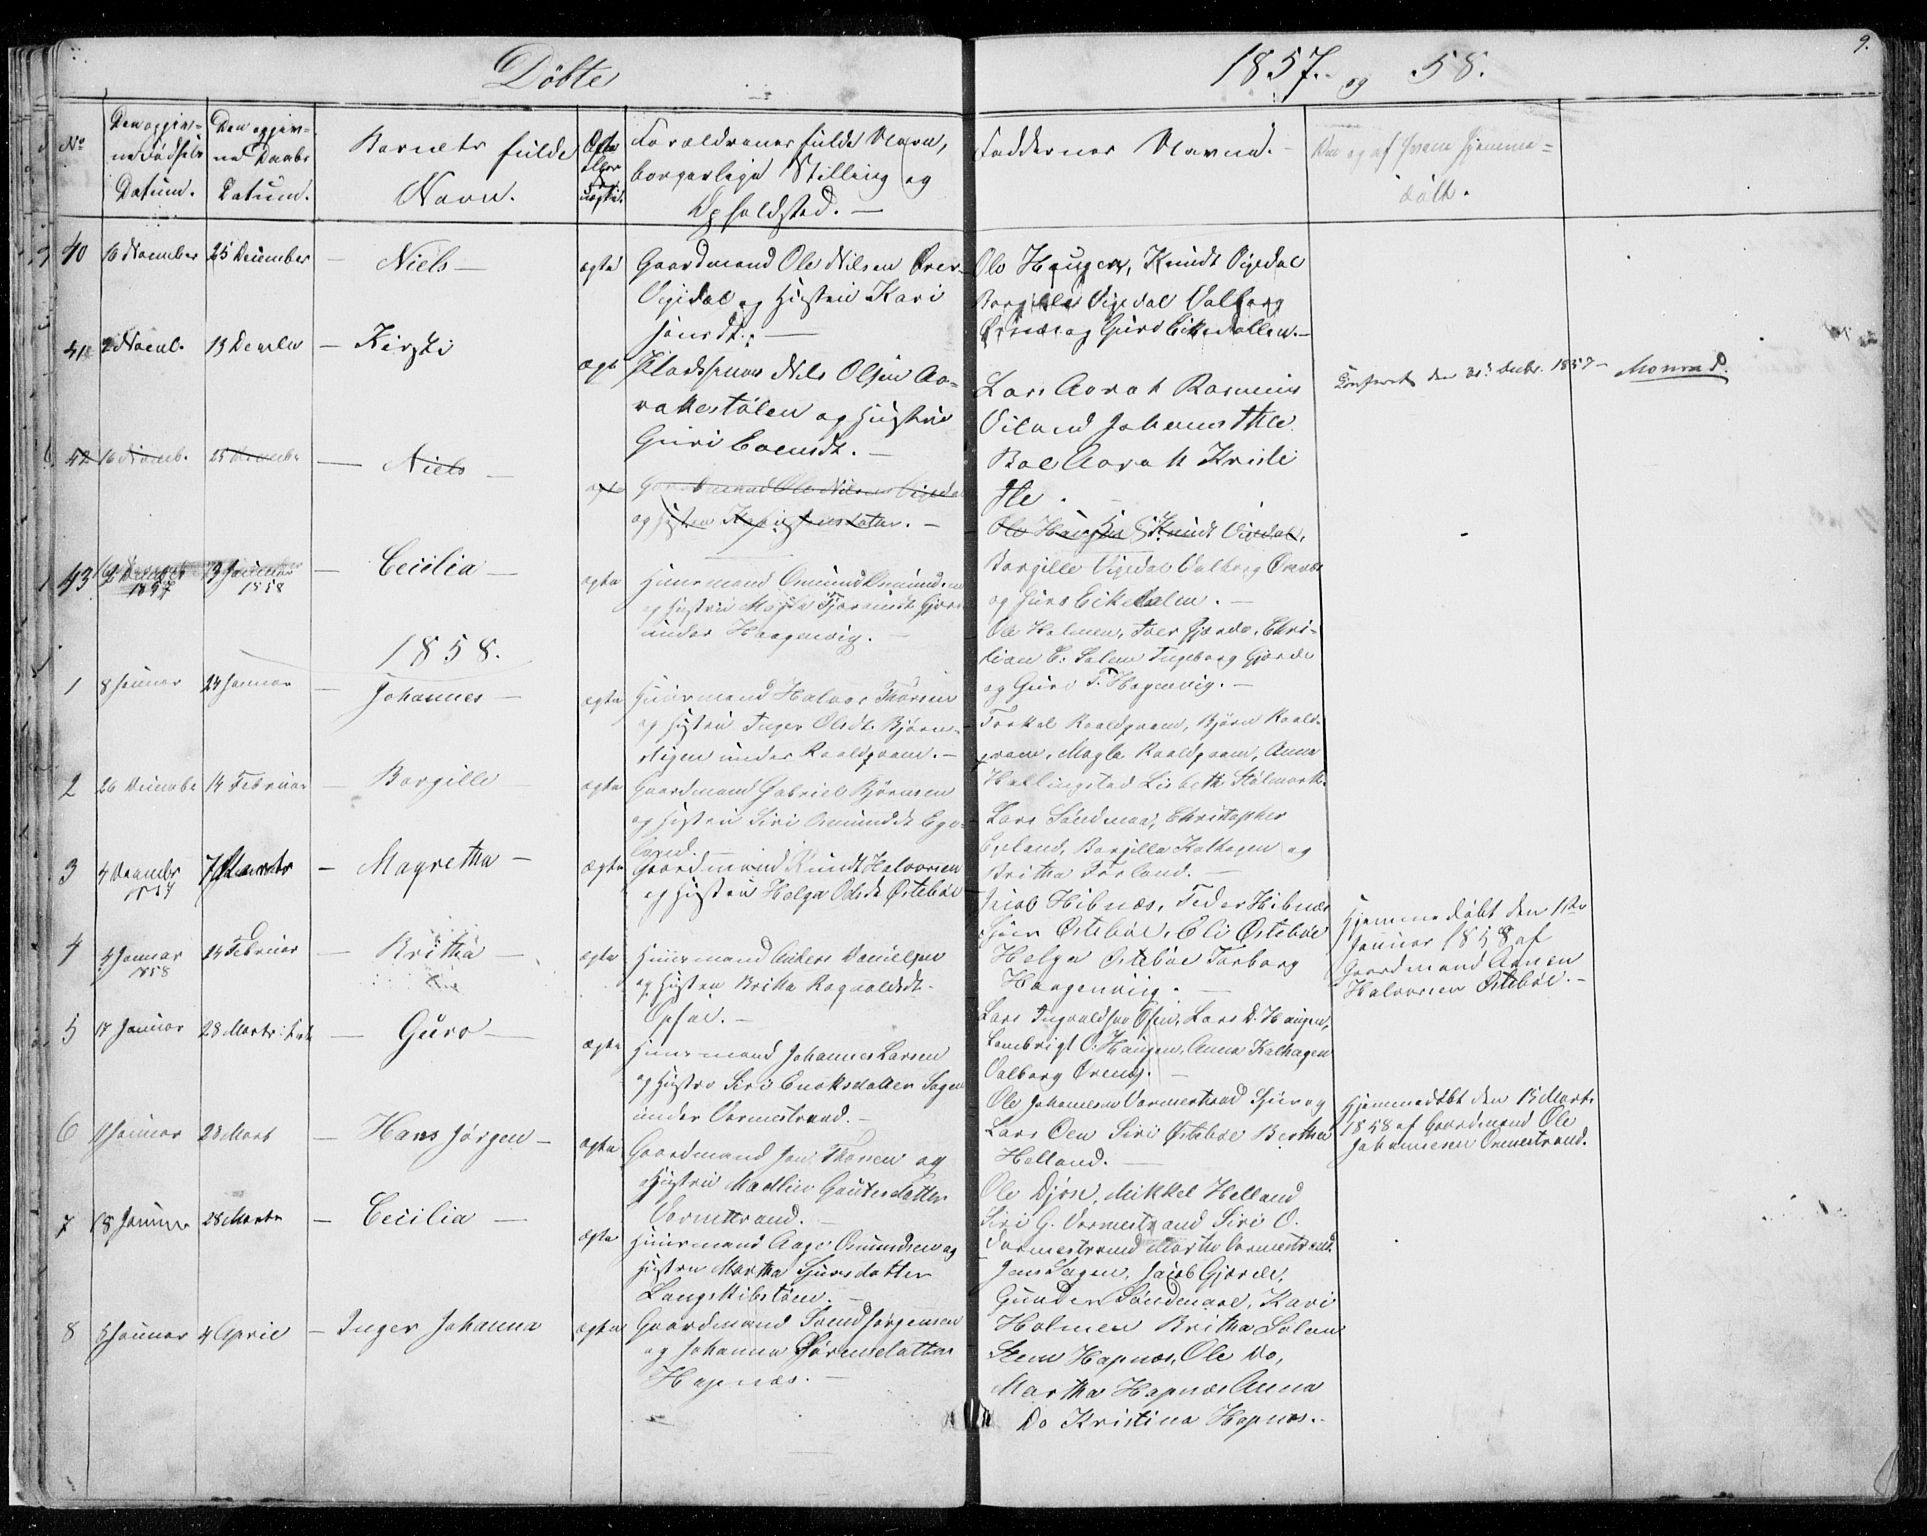 Döbte
1857. og 58.
9.
No
Den opgiv-
ne Födsels
Datum.
Den opgiv-
ne Daabs
Datum.
Barnets fulde
Navn.
Ægte
eller
uægte.
Forældrenes fulde Navn,
borgerlige Stilling og
Opholdsted. —
Faddernes Navne. —
Naar og af hvem hjemme-
döbt.
40
16 November
25 December
Niels —
ægte
Gaardmand Ole Nilsen Över
Vigedal og Hustru Kari
Jonsdt. —
Ole Haugen, Knudt Vigedal
Borgille Vigedal Valborg
Örenes og Guro Eikedallen. —
41
Novemb.
13 December
— Kirsti
ægte
Pladsmand Nils Olsen Aa-
rakestölen og Hustru
Guri
Lars Aarak Rasmus
Viland Johannes Hle
Boe Aarak Kristi
Hle.
Confereret den 31. Decbr. 1857 — Monrad.
42
16 Novemb.
25 December
— Niels —
ægte
Gaardmand Ole Nilsen Vigedal
og Hustru Kari Jonsdatter. —
Ole Haugen Knudt Vigedal,
Borgille Vigedal Valborg Örenes
og Guro Eikedalen. —
43
1857
3 Januar
1858
— Cecilia —
ægte
Huusmand Omund Omundsen
og Hustru Magla Gjerde
under Haagenvig. —
Ole Holmen, Tver Gjerde, Chri-
stian E. Solem Ingeborg Gjerde
og Guri T. Hagenvig. —
1858.
1
8 Januar
24 Januar
— Johannes —
ægte
Huusmand Halvor Thorsen
og Hustru Inger Olsdt. Björn-
stigen under Raaldqvam. —
Torkel Raaldqvam, Björn Raald-
qvam, Magla Raaldqvam, Anna
Hallingstad Lisbeth Stölmark.
2
26 December
14 Februar
— Borgille
ægte
Gaardmand Gabriel Björnsen
og Hustru Siri Omundsdt Ege-
land. —
Lars Söndenaa, Christopher
Egeland, Borgilla Kalhagen og
Britha Förland. —
3
4 December
7 Marts
— Magretha —
ægte
Gaardmand Knudt Halvorsen
og Hustru Helga Odsdt Östeböe
Jacob Hibnæs, Peder Hibnæs
Sjur Östeböe, Eli Östeböe
Helga Östeböe Torborg
Haagenvig. —
Hjemmedöbt den 1ste
Januar 1858 af
Gaardmand Aanen
Halvorsen Östeböe. —
4
4 Januar
1858
14 Februar
— Britha —
ægte
Huusmand Anders Danielsen
og Hustru Britha Ragnvaldsdt.
Opsal. —
Lars Ingvaldsen Osen, Lars D. Haugen,
Lambrigt O. Haugen, Anna Kalhagen
Valborg Örenes. —
5
17 Januar
28 Marts
— Guro —
ægte
Huusmand Johannes Larsen
og Hustru Siri Enoksdatter Sagen
under Vormestrand. —
Ole Johannesen Vormestrand Sjur og
Lars Oen Siri Östeböe Bertha
Helland. —
Hjemmedöbt den 15 Marts
1858 af Gaardmand Ole
Johannesen Ormestrand.
6
11 Januar
28 Mart
— Hans Jörgen —
ægte
Gaardmand Jon Thorsen og
Hustru Madlin Gautesdatter
Vormstrand. —
Ole Djön, Mikkel Helland
Siri G. Vormestrand Siri O.
Vormestrand Martha Vormestrand.
7
18 Januar
28 Marts
— Cecilia —
ægte
Huusmand Aage Omundsen og
Hustru Martha Sjursdatter
Langskibstöen. —
Jens Sagen, Jacob Gjerde,
Gunder Söndenaae, Kari
Holmen Britha Solem
8
5 Januar
4 April
— Inger Johanna
ægte
Gaardmand Svend Jörgensen
og Johanna Sörensdatter
Hapnæs. —
Steen Hapnæs, Ole Do,
Martha Hapnæs Anna
Do Kristina Hapnæs. —